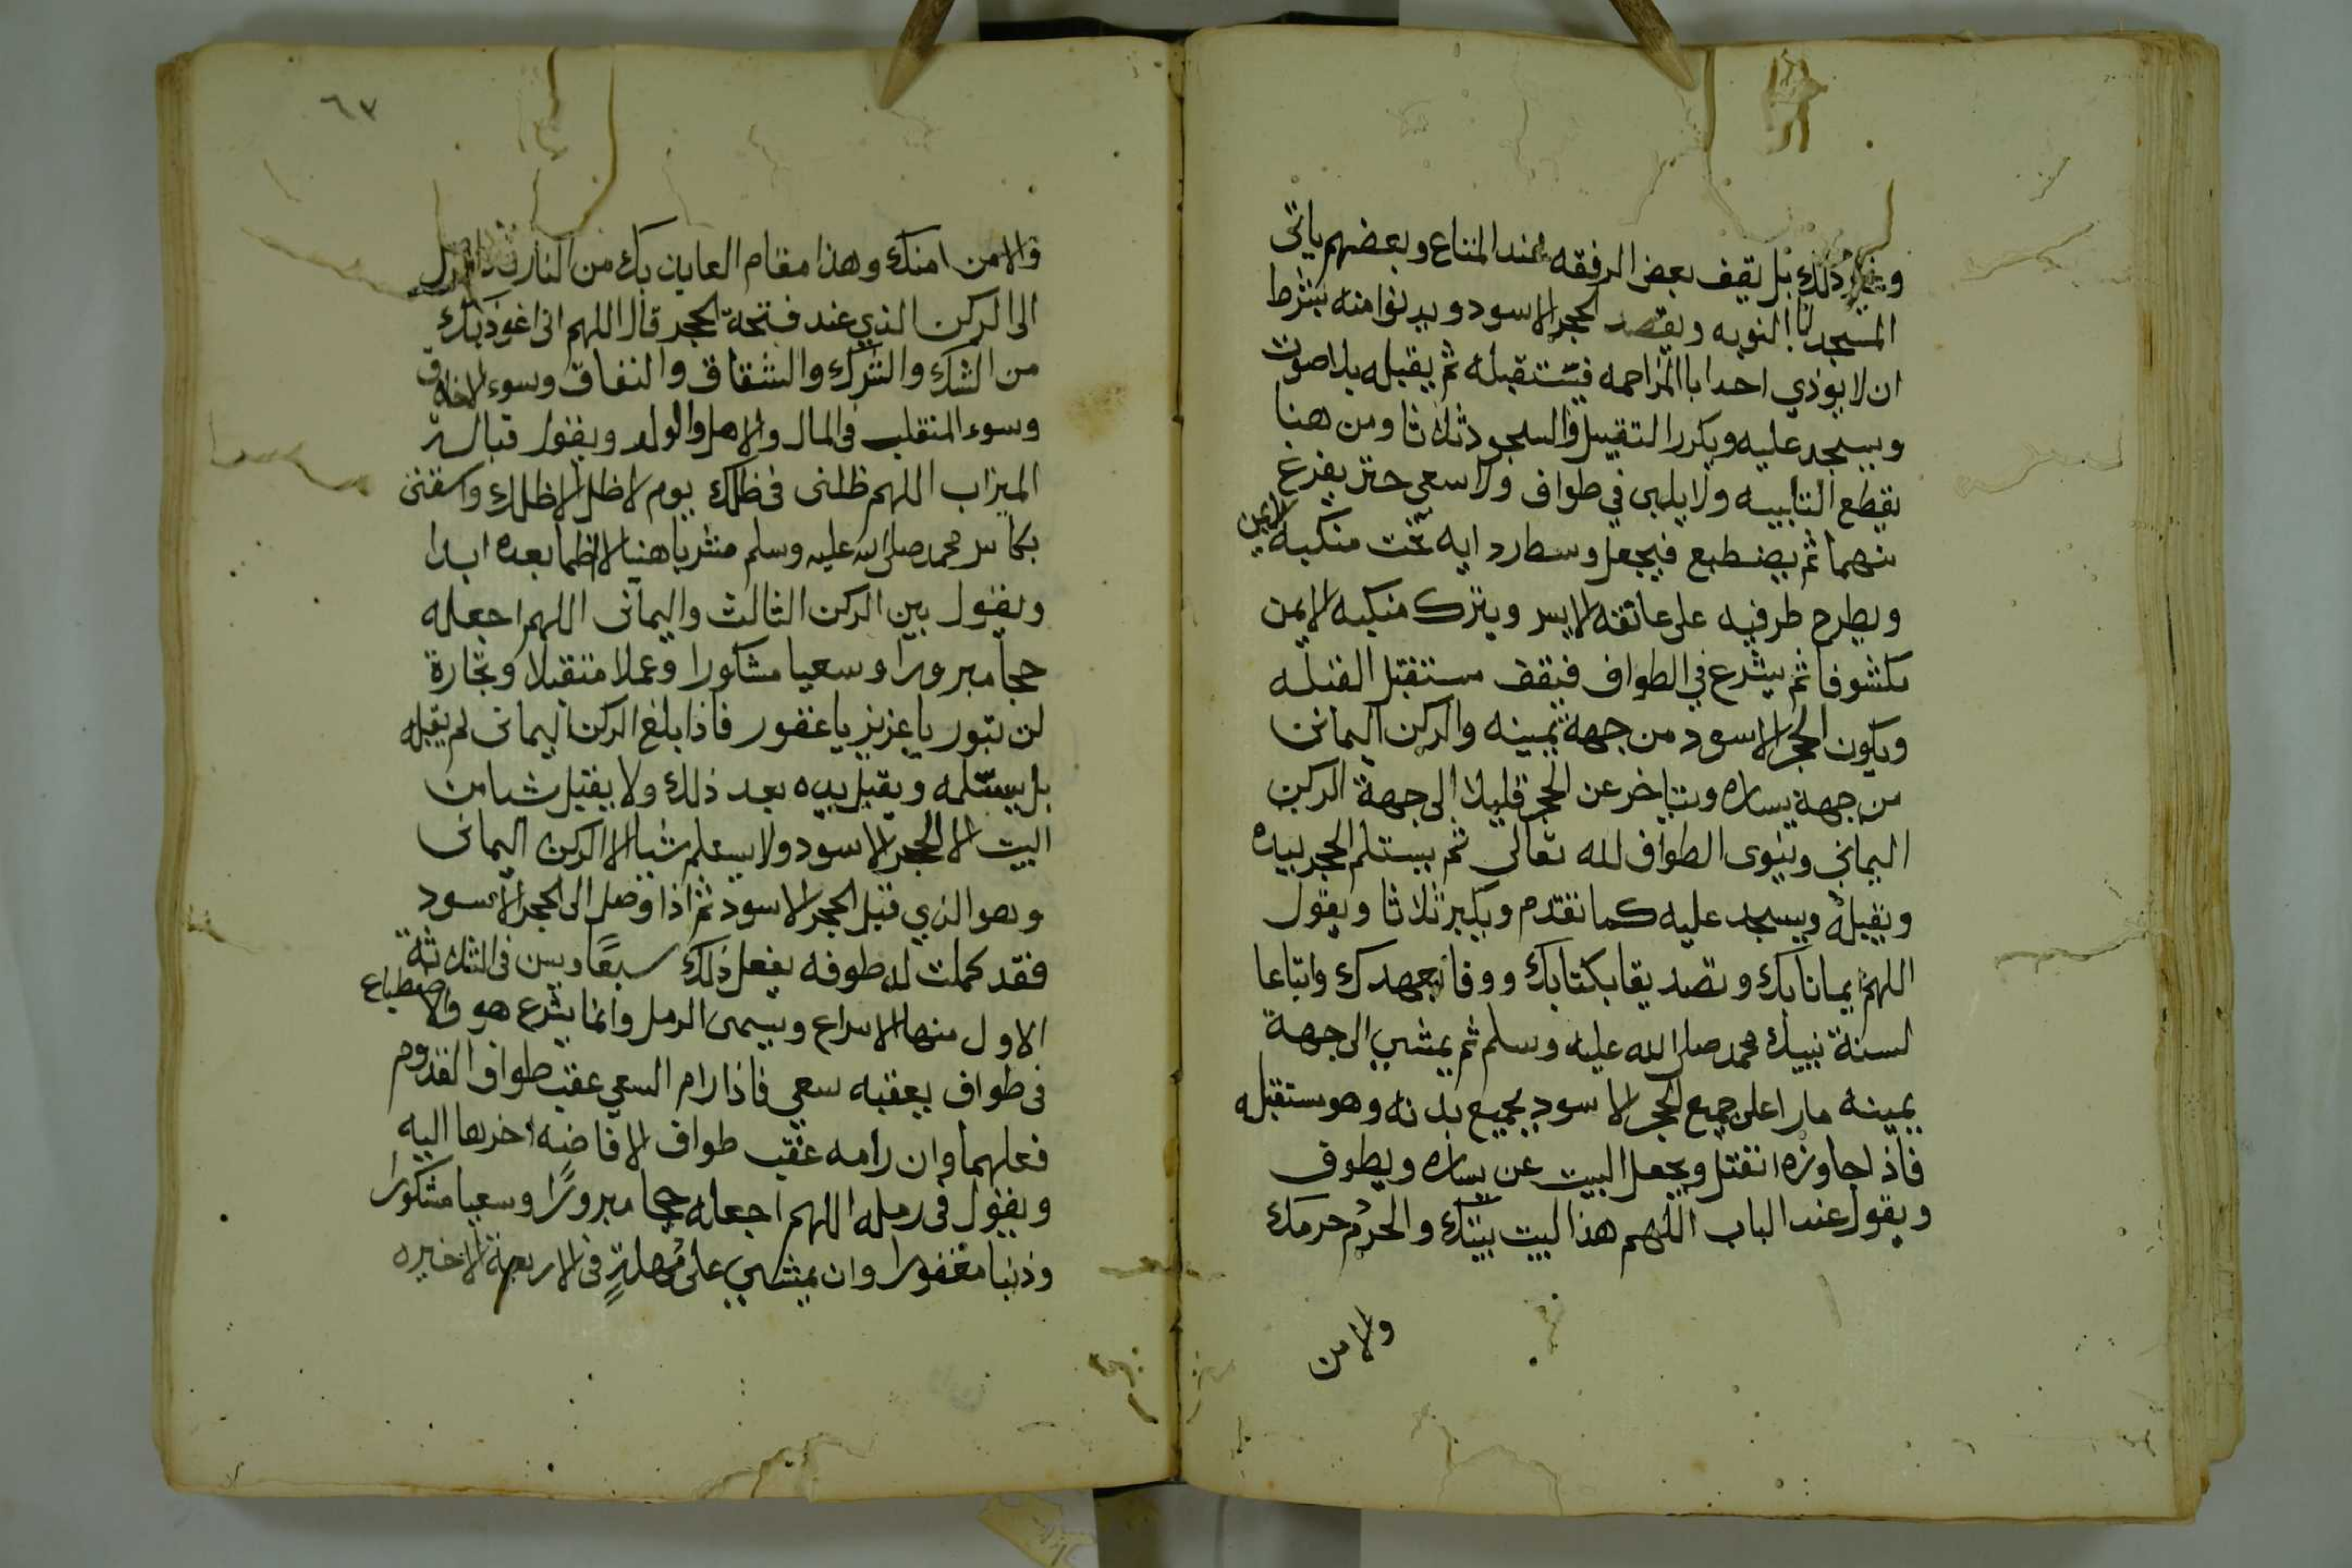 وغير ذلك بل يقف بعض الرفقه عند المتاع وبعضهم ياتى
المسجد بالنوبه ويقصد الحجر الاسود ويدنوا منه بشرط
ان لا يوذي احدا باالمزاحمه فيستقبله ثم يقبله بلا صوت
ويسجد عليه ويكرر التقبيل والسجود ثلاثا ومن هنا
يقطع التلبيه ولا يلبى في طواف ولا سعي حتى يفرغ
منهما ثم يضطبع فيجعل وسط ردايه تحت منكبه الايمن
ويطرح طرفيه على عاتقه الايسر ويترك منكبه الايمن
مكشوفا ثم يشرع في الطواف فيقف مستقبل القبله
ويكون الحجر الاسود من جهة يمينه والركن اليمانى
من جهة يساره ويتاخر عن الحجر قليلا الى جهة الركن
اليماني وينوى الطواف لله تعالى ثم يستلم الحجر بيده
ويقبله ويسجد عليه كما تقدم ويكبر ثلاثا ويقول
اللهم ايمانا بك وتصديقا بكتابك ووفا بعهدك واتباعا
لسنة نبيك محمد صلى الله عليه وسلم ثم يمشي الى جهة
يمينه مارا على جميع الحجر الاسود بجميع بدنه وهو مستقبله
فاذا جاوزه انفتل ويجعل البيت عن يساره ويطوف
ويقول عند الباب اللهم هذا البيت بيتك والحرم حرمك
والامن
٦٧
والامن امنك وهذا مقام العايذ بك من النار
الى الركن الذي عند فتحة الحجر قال اللهم انى اعوذ بك
من الشك والشرك والشقاق والنفاق وسوء الاخلاق
وسوء المنقلب فى المال والاهل والولد ويقول قبالة
الميزاب اللهم ظلنى فى ظلك يوم لا ظل الا ظلك واسقنى
بكاس محمد صلى الله عليه وسلم مشربا هنيا لا اظما بعده ابدا
ويقول بين الركن الثالث واليمانى اللهم اجعله
حجا مبرورا وسعيا مشكورا وعملا متقبلا وتجارة
لن تبور يا عزيز يا غفور فاذا بلغ الركن اليمانى لم يقبله
بل يستلمه ويقبل يده بعد ذلك ولا يقبل شيا من
البيت الا الحجر الاسود ولا يستلم شيا الا الركن اليمانى
وهو الذي قبل الحجر الاسود ثم اذا وصل الى الحجر الاسود
فقد كملت له طوفه يفعل ذلك سبعًا ويسن فى الثلاثة
الاول منها الاسراع ويسمى الرمل وانما يشرع هو والاضطباع
فى طواف يعقبه سعي فاذا رام السعي عقب طواف القدوم
فعلهما وان رامه عقب طواف الافاضه اخرهما اليه
ويقول فى رمله اللهم اجعله حجا مبرورًا وسعيا مشكورا
وذنبا مغفورا وان يمشي على مهلةٍ فى الاربعة الاخيره